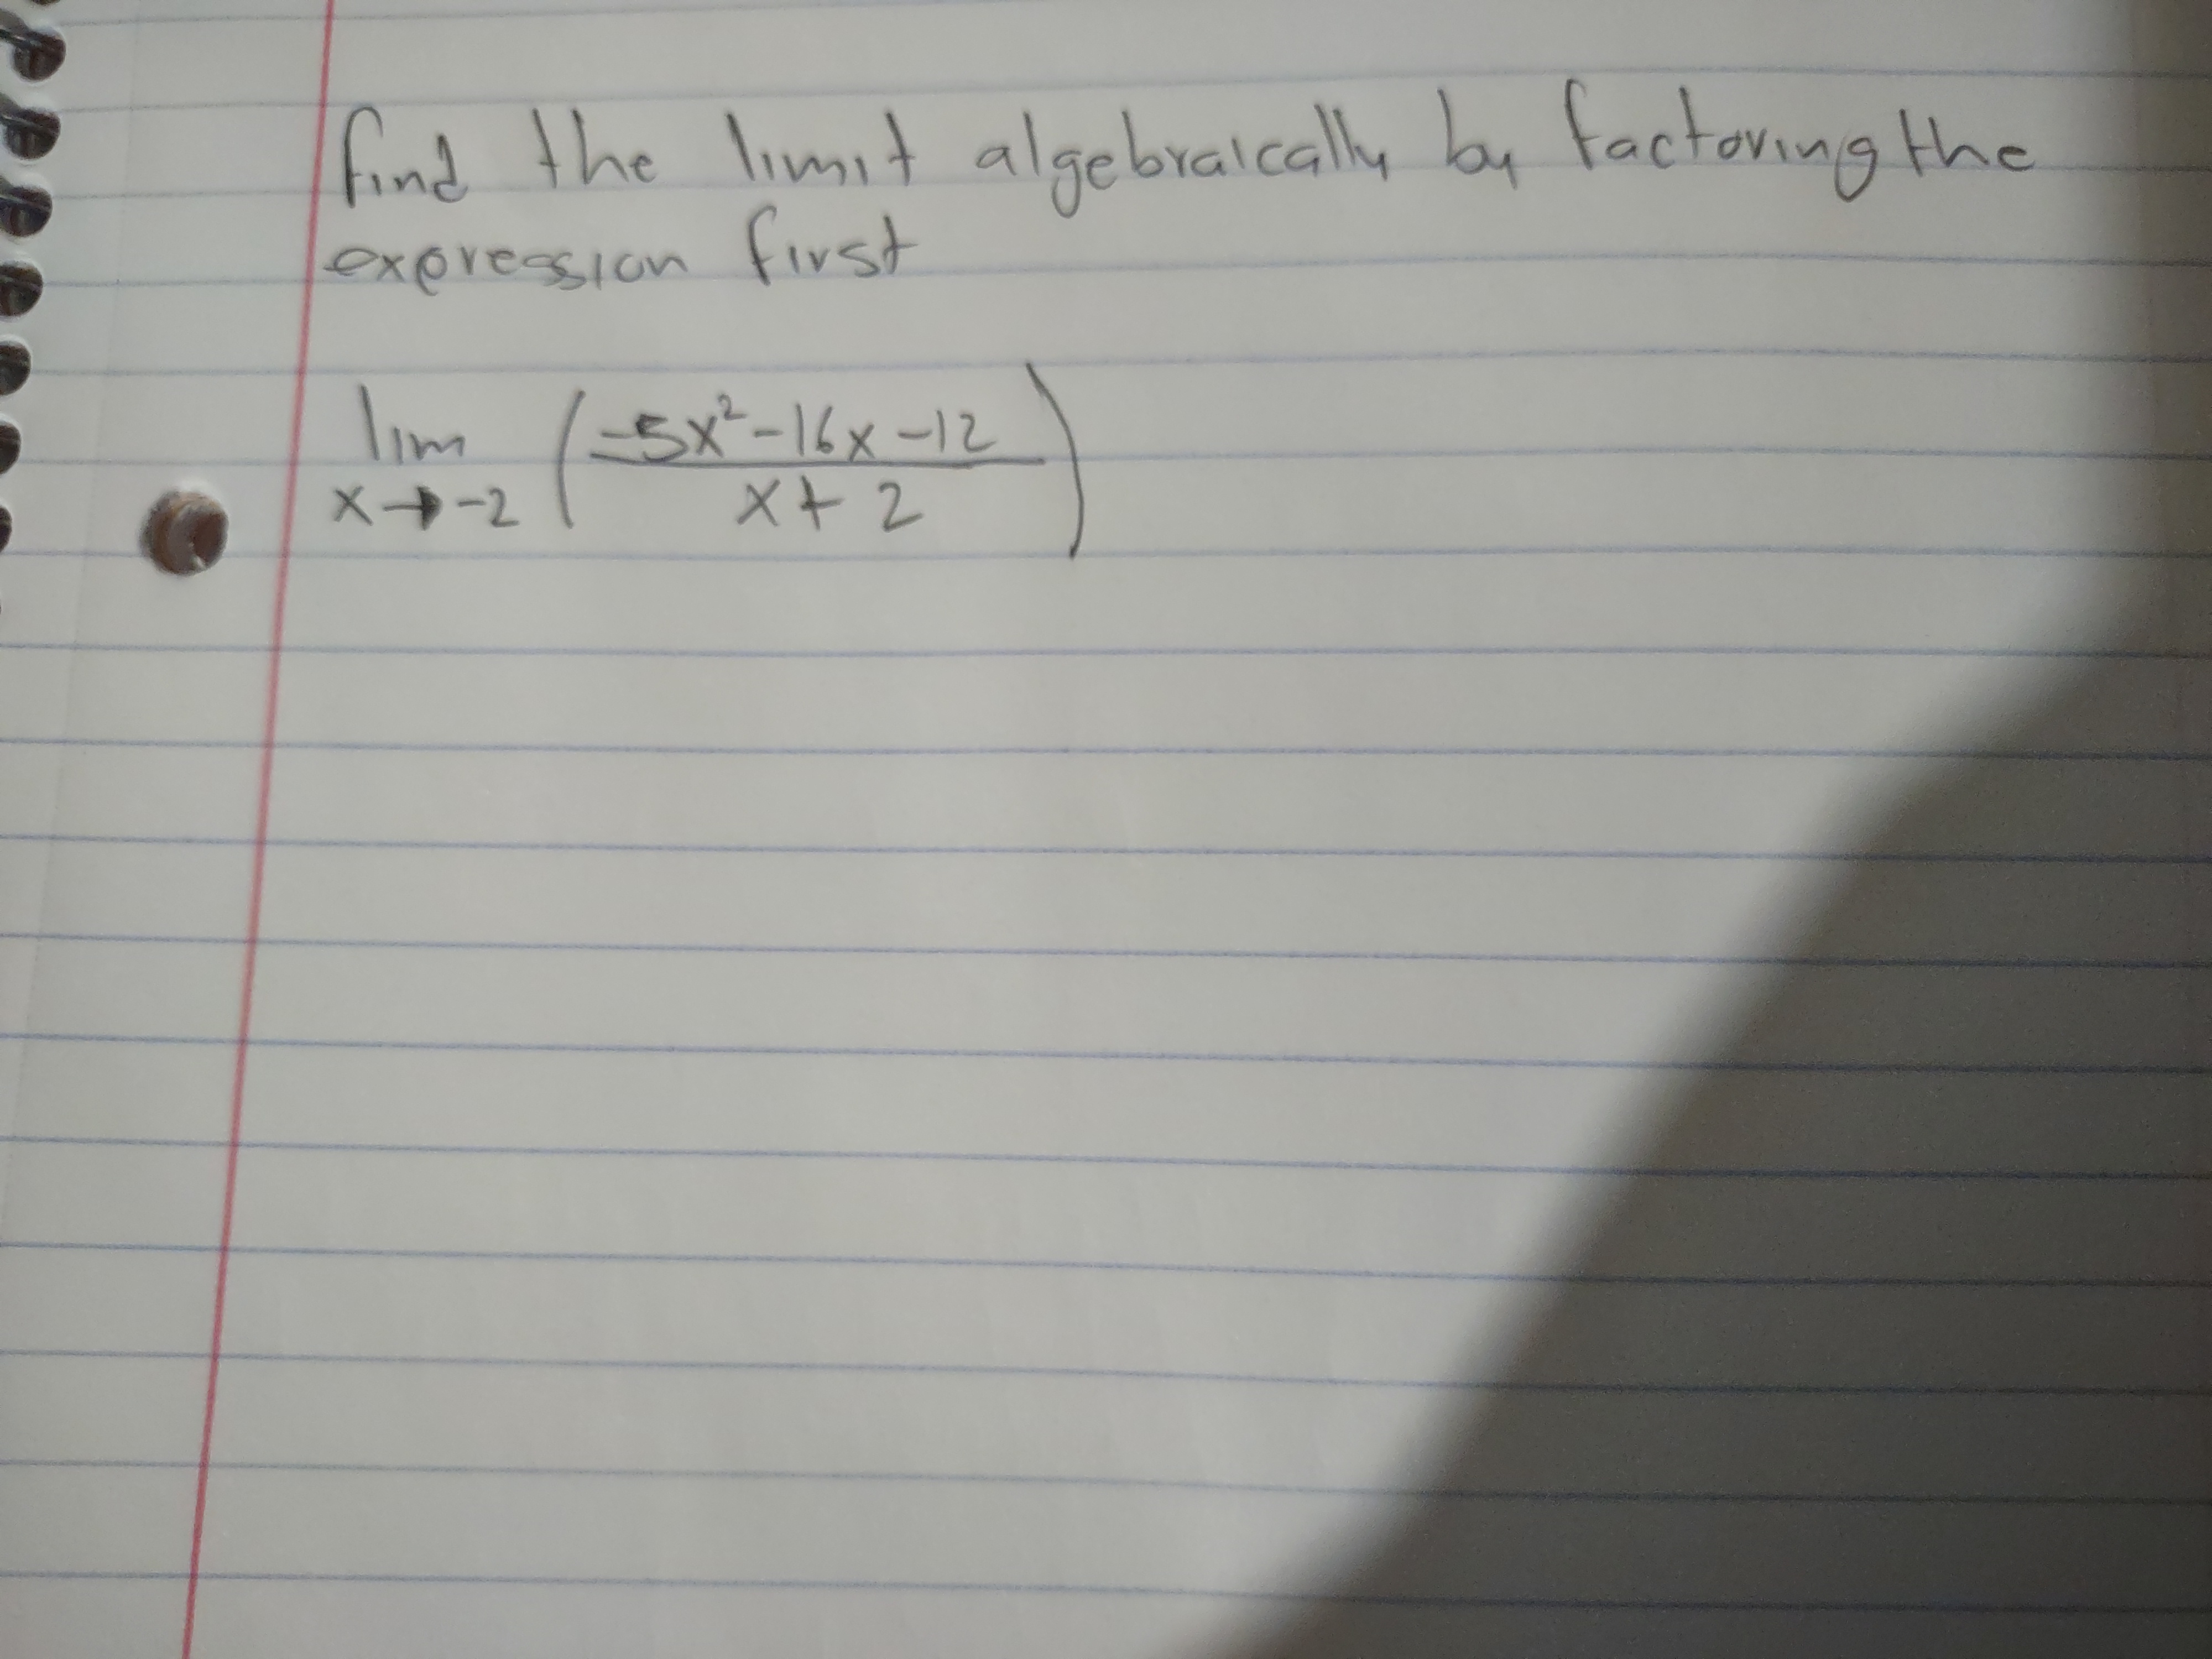 find the limit algebraically by factoring the
expression first
lim x→-2 ( (-5x²-16x-12) / (x+2) )